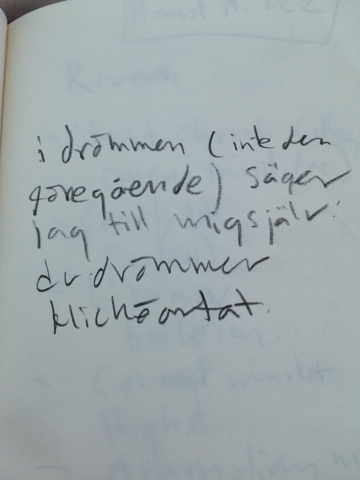 i drömmen (inte den
föregående) säger
jag till mig själv:
du drömmer
klichéartat.